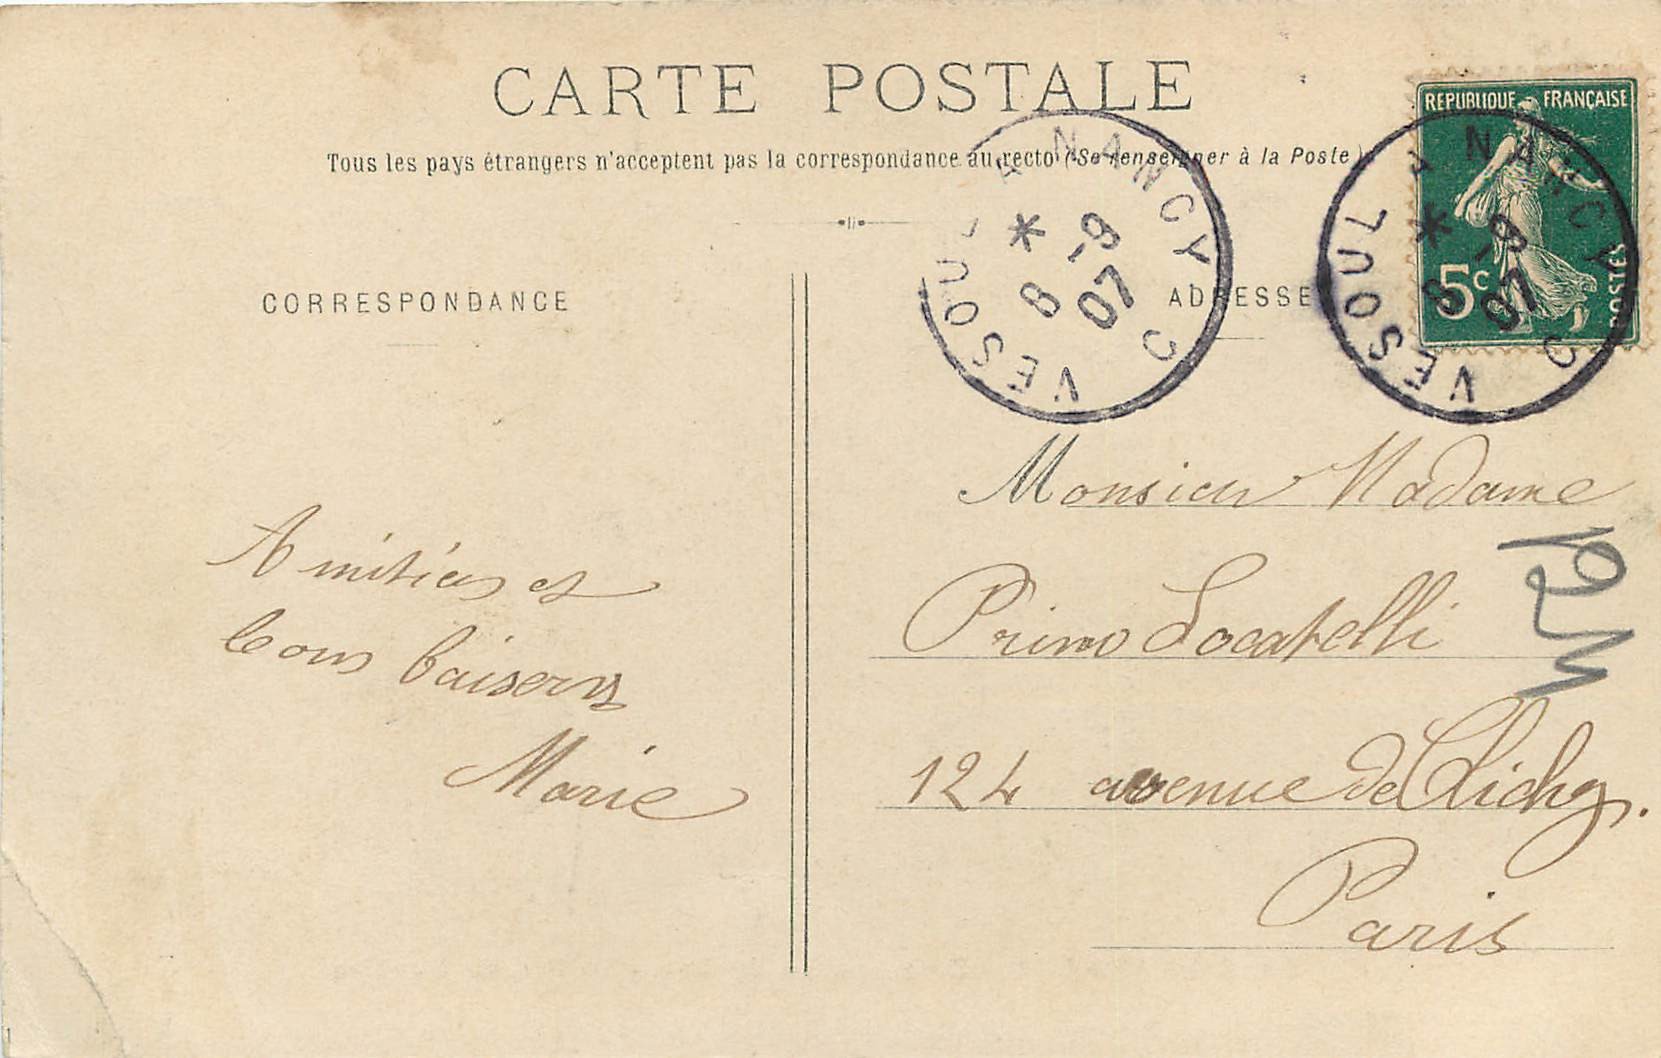 CARTE POSTALE
Tous les pays étrangers n'acceptent pas la correspondance au recto (Se renseigner à la Poste)
CORRESPONDANCE
ADRESSE
REPUBLIQUE FRANÇAISE
5c
POSTES
VESOUL A NANCY C
* 8 -9 07
VESOUL A NANCY C
* 8 -9 07
Amitiés et
bons baisers
Marie
Monsieur Madame
Primo Locatelli
124 avenue de Clichy.
Paris